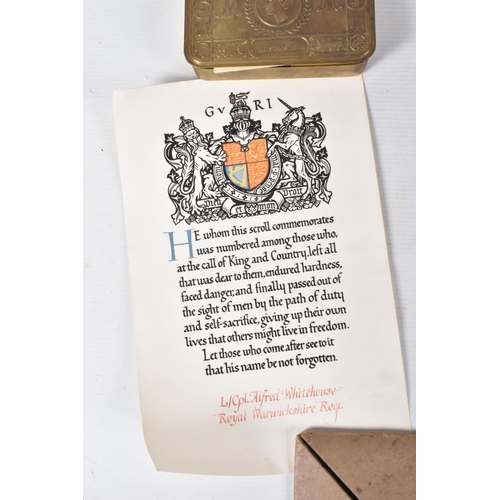 M M
GV RI
Dieu et mon Droit
HE whom this scroll commemorates
was numbered among those who,
at the call of King and Country, left all
that was dear to them, endured hardness,
faced danger, and finally passed out of
the sight of men by the path of duty
and self-sacrifice, giving up their own
lives that others might live in freedom.
Let those who come after see to it
that his name be not forgotten.
L/Cpl. Alfred Whitehouse
Royal Warwickshire Regt.